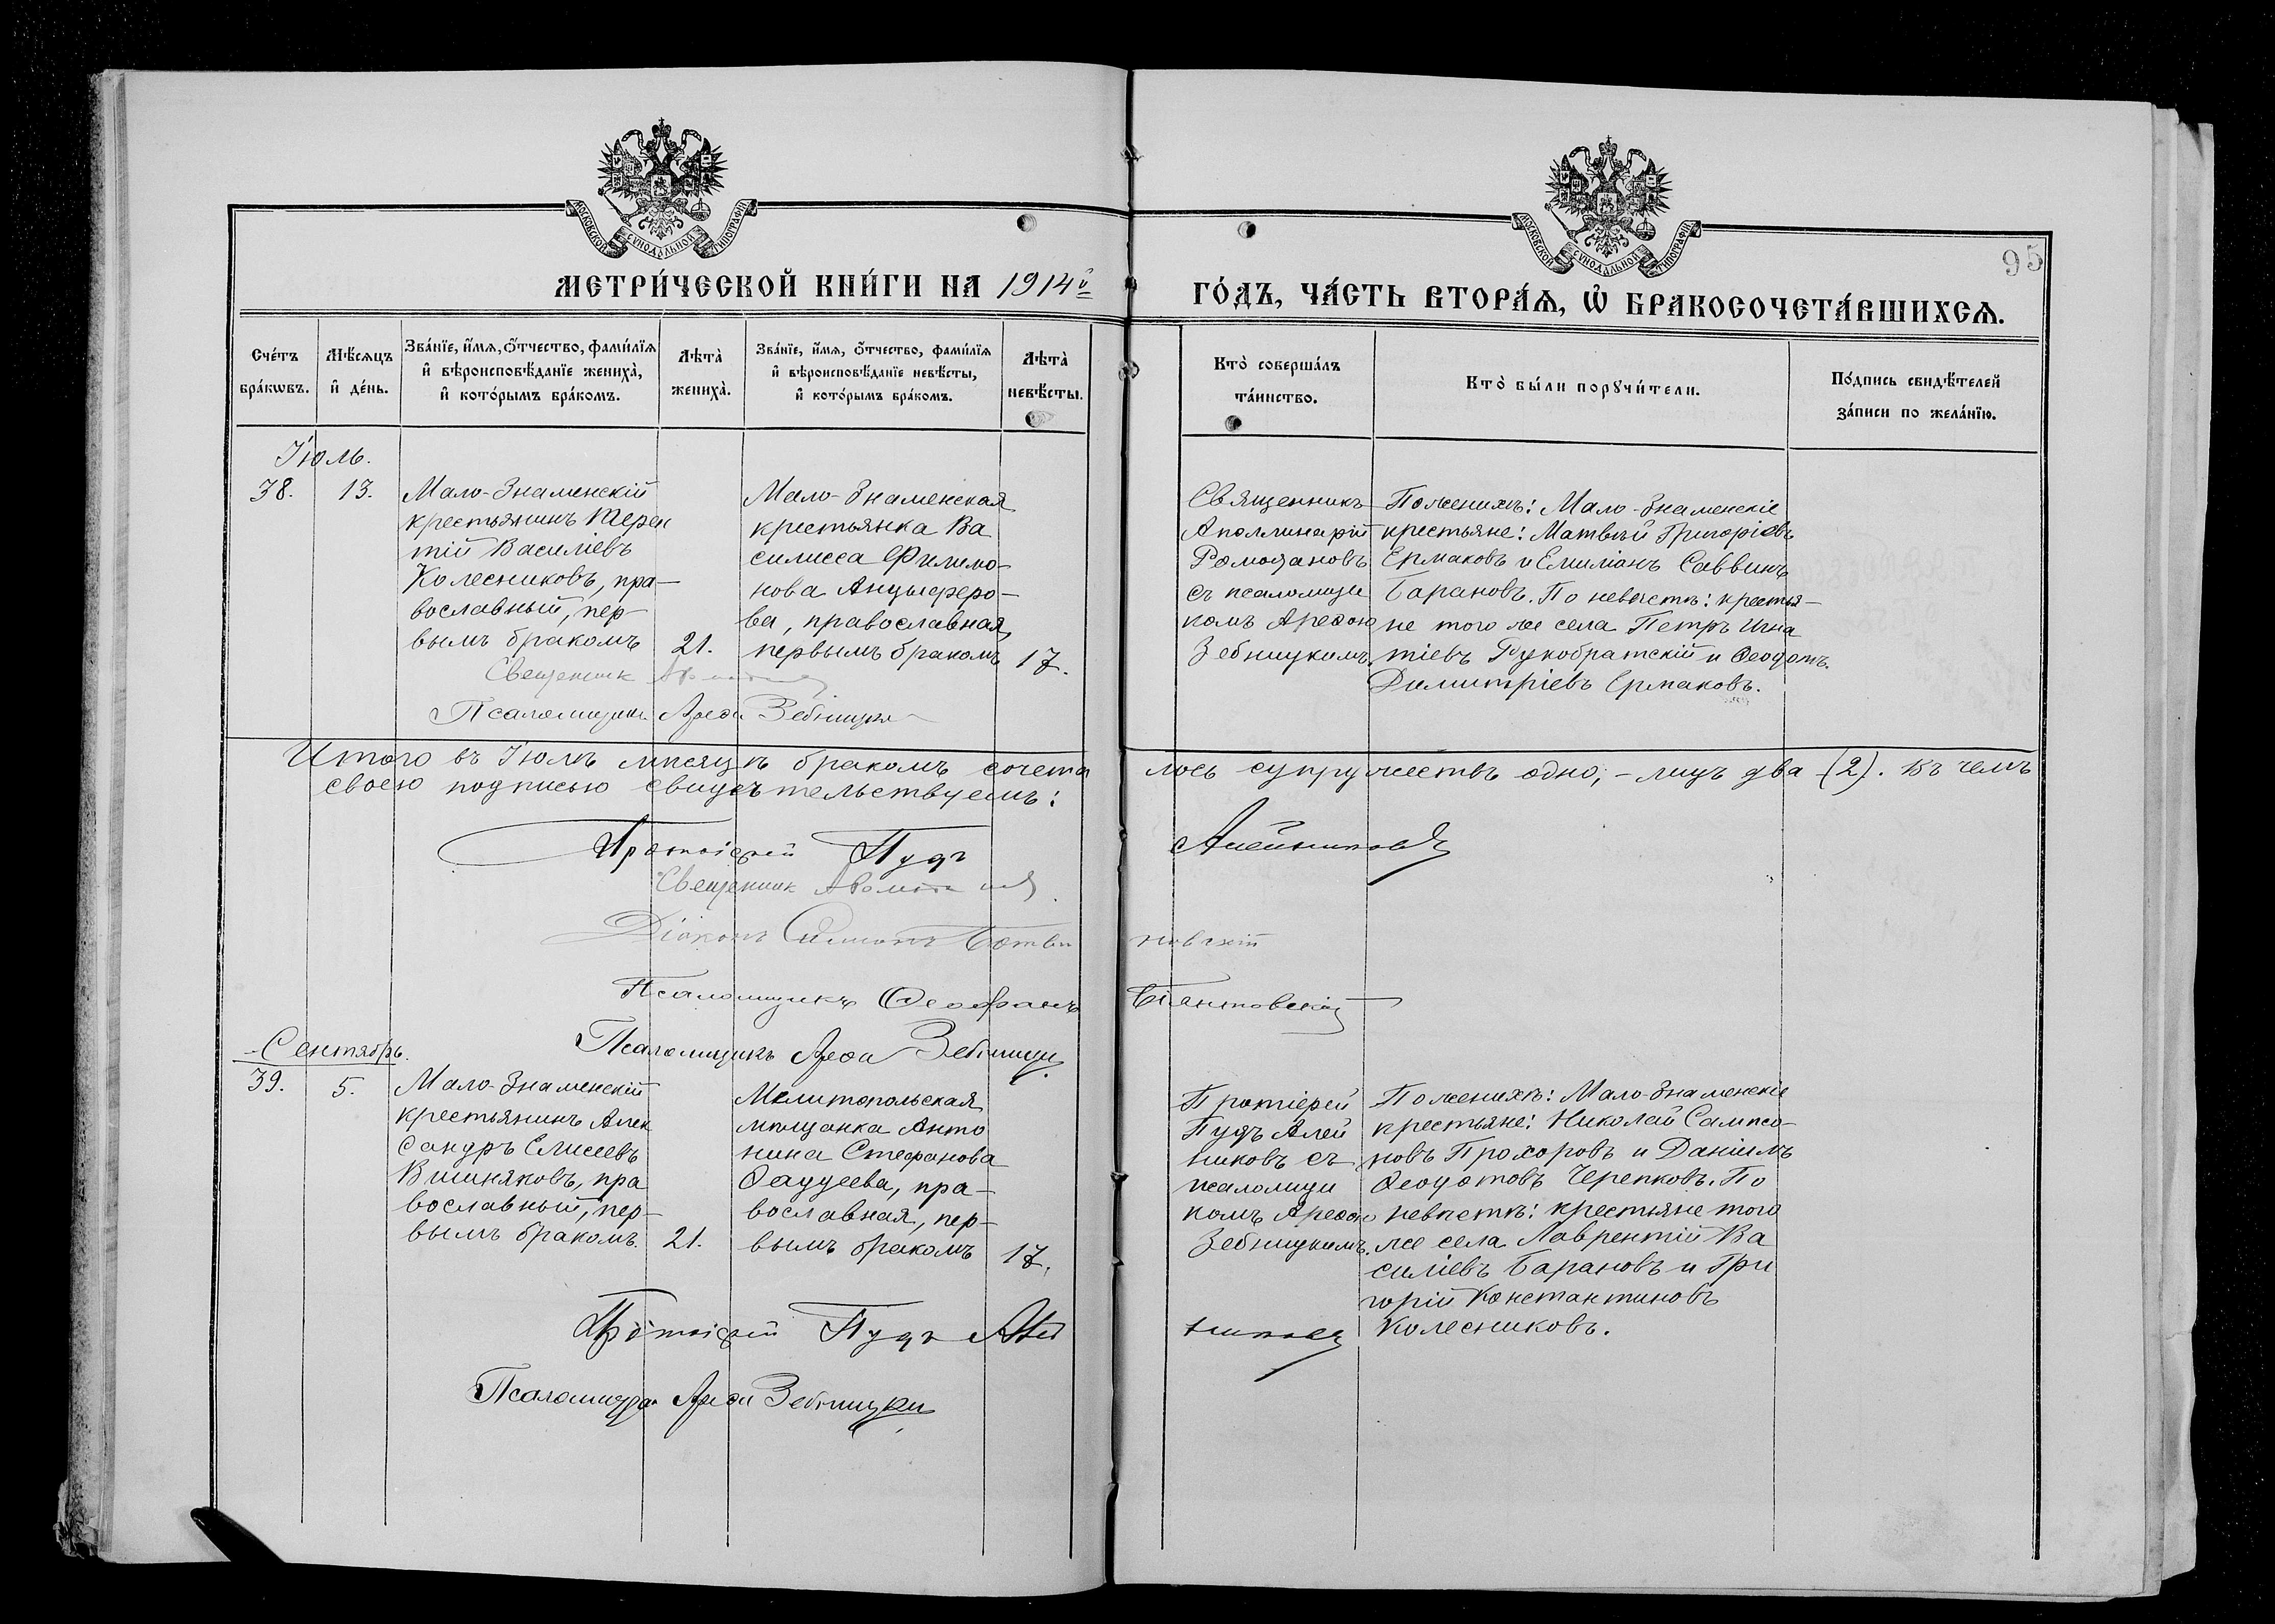 МОСКОВСКОЙ СѴНОДАЛЬНОЙ ТИПОГРАФІИ
МОСКОВСКОЙ СѴНОДАЛЬНОЙ ТИПОГРАФІИ
95
МЕТРИ́ЧЕСКОЙ КНИ́ГИ НА 1914й
ГО́ДЪ, ЧА́СТЬ ВТОРА́Ѧ, Ѡ҆ БРАКОСОЧЕТА́ВШИХСѦ.
Сче́тъ бра́кѡвъ.
Мѣ́сѧцъ и҆ де́нь.
Зва́нїе, и҆́мѧ, ѻ҆́тчество, фами́лїѧ
и҆ вѣроисповѣ́данїе жениха̀,
и҆ кото́рымъ бра́комъ.
Лѣта̀ жениха̀.
Зва́нїе, и҆́мѧ, ѻ҆́тчество, фами́лїѧ
и҆ вѣроисповѣ́данїе невѣ́сты,
и҆ кото́рымъ бра́комъ.
Лѣта̀ невѣ́сты.
Кто̀ соверша́лъ
та́инство.
Кто̀ бы́ли порꙋчи́тели.
По́дпись свидѣ́телей
за́писи по жела́нїю.
Іюль.
38.
13.
Мало-Знаменскій
крестьянинъ Терен
тій Василіевъ
Колесниковъ, пра-
вославный, пер-
вымъ бракомъ
21.
Мало-Знаменская
крестьянка Ва
силисса Филимо-
нова Анцыферо-
ва, православная,
первымъ бракомъ
17.
Священникъ
Аполлинарій
Ромодановъ
съ псаломщи
комъ Арефою
Зебницкимъ.
По женихѣ: Мало-Знаменскіе
крестьяне: Матвѣй Григоріевъ
Ермаковъ и Емиліанъ Саввинъ
Барановъ. По невѣстѣ: крестья-
не того же села Петръ Игна
тіевъ Рукобратскій и Ѳеодотъ
Димитріевъ Ермаковъ.
Священник
Псаломщикъ Арефа Зебницкій
Итого въ Іюлѣ мѣсяцѣ бракомъ сочета
лось супружествъ одно, - лицъ два (2). Въ чемъ
своею подписью свидѣтельствуемъ:
Протоіерей Пудъ Алейниковъ
Священник
Діаконъ Симеонъ
Псаломщикъ Ѳеофанъ
Псаломщикъ Арефа Зебницкій
Сентябрь.
39.
5.
Мало-Знаменскій
крестьянинъ Алек
сандръ Елисеевъ
Вишняковъ, пра
вославный, пер-
вымъ бракомъ.
21.
Мелитопольская
мѣщанка Анто
нина Стефанова
Ѳаддеева, пра-
вославная, пер-
вымъ бракомъ
17.
Протіерей
Пудъ Алей
никовъ съ
псаломщи
комъ Арефою
Зебницкимъ.
По женихѣ: Мало-Знаменскіе
крестьяне: Николай Сампсо-
новъ Прохоровъ и Даніилъ
Ѳеодотовъ Черепковъ. По
невѣстѣ: крестьяне того
же села Лаврентій Ва
силіевъ Барановъ и Гри
горій Константиновъ
Колесниковъ.
Протоіерей Пудъ Алейниковъ
Псаломщикъ Арефа Зебницкій